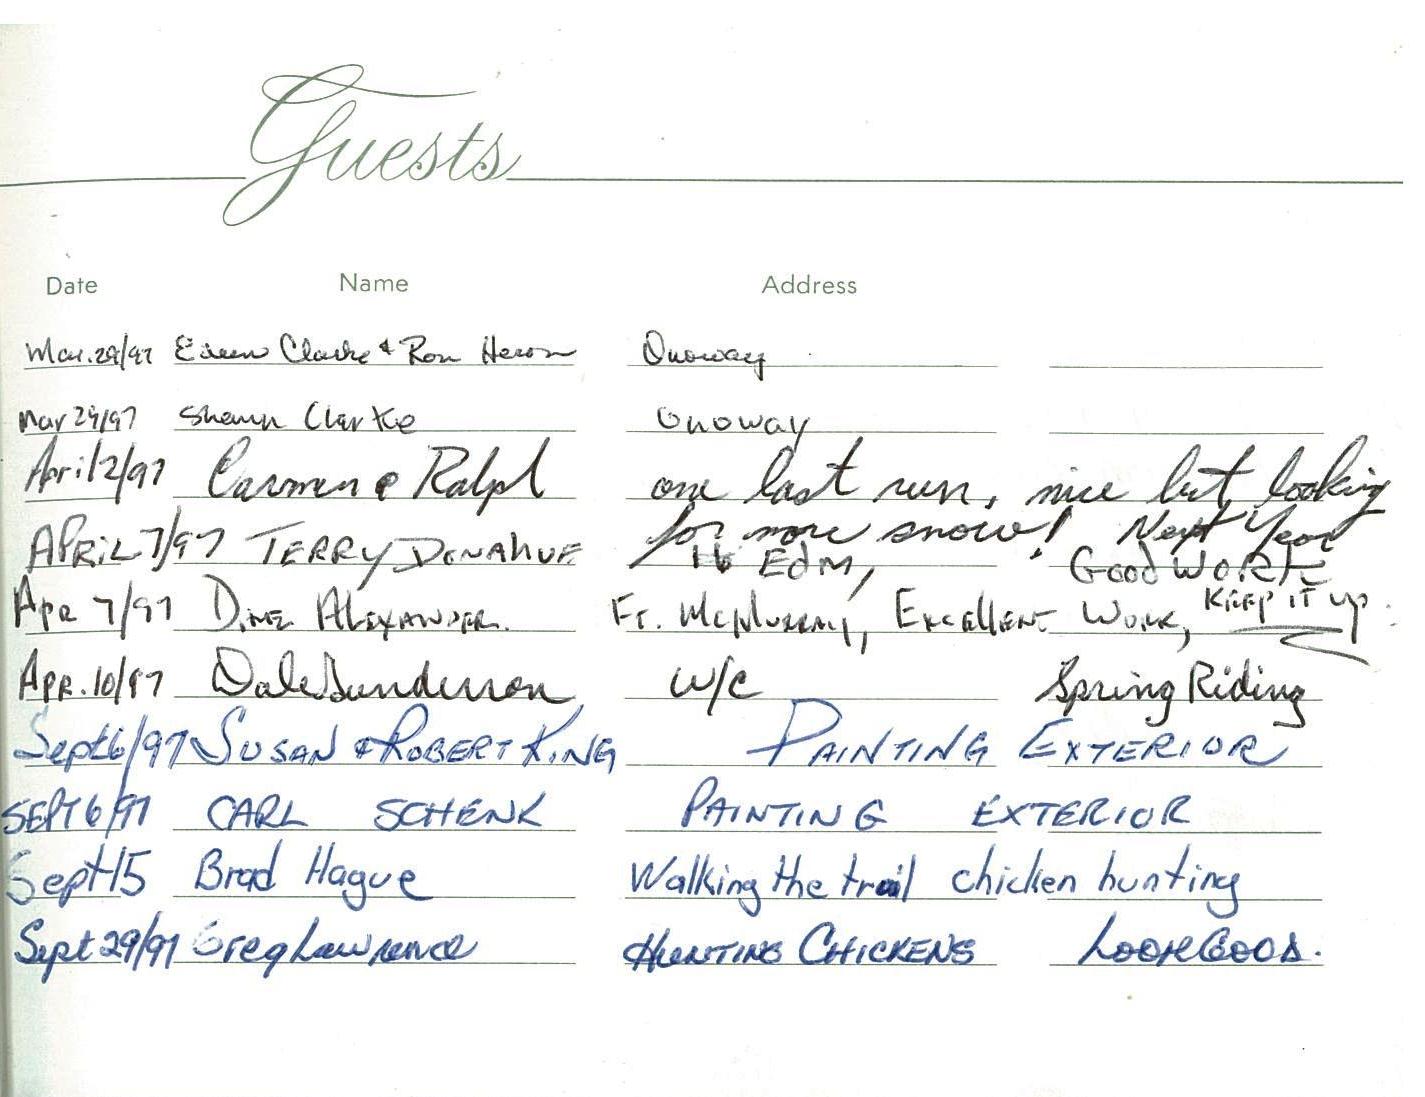 Guests
Date Name Address
Mar. 29/97 Eileen Clarke & Ron Heron Onoway
Mar 29/97 Shawn Clarke Onoway
April 2/97 Carmen & Ralph one last run, nice but looking
for more snow! Next Year
APRIL 7/97 TERRY DONAHUE Edm, Good Work
Apr 7/97 ALEXANDER. Ft. McMurray, EXCELLENT WORK, KEEP IT UP
APR. 10/97 Dale Gunderson W/C Spring Riding
Sept 6/97 SUSAN & ROBERT KING PAINTING EXTERIOR
SEPT 6/97 CARL SCHENK PAINTING EXTERIOR
Sept 15 Brad Hague Walking the trail chicken hunting
Sept 29/97 Greg Lawrence HUNTING CHICKENS LOOK GOOD.